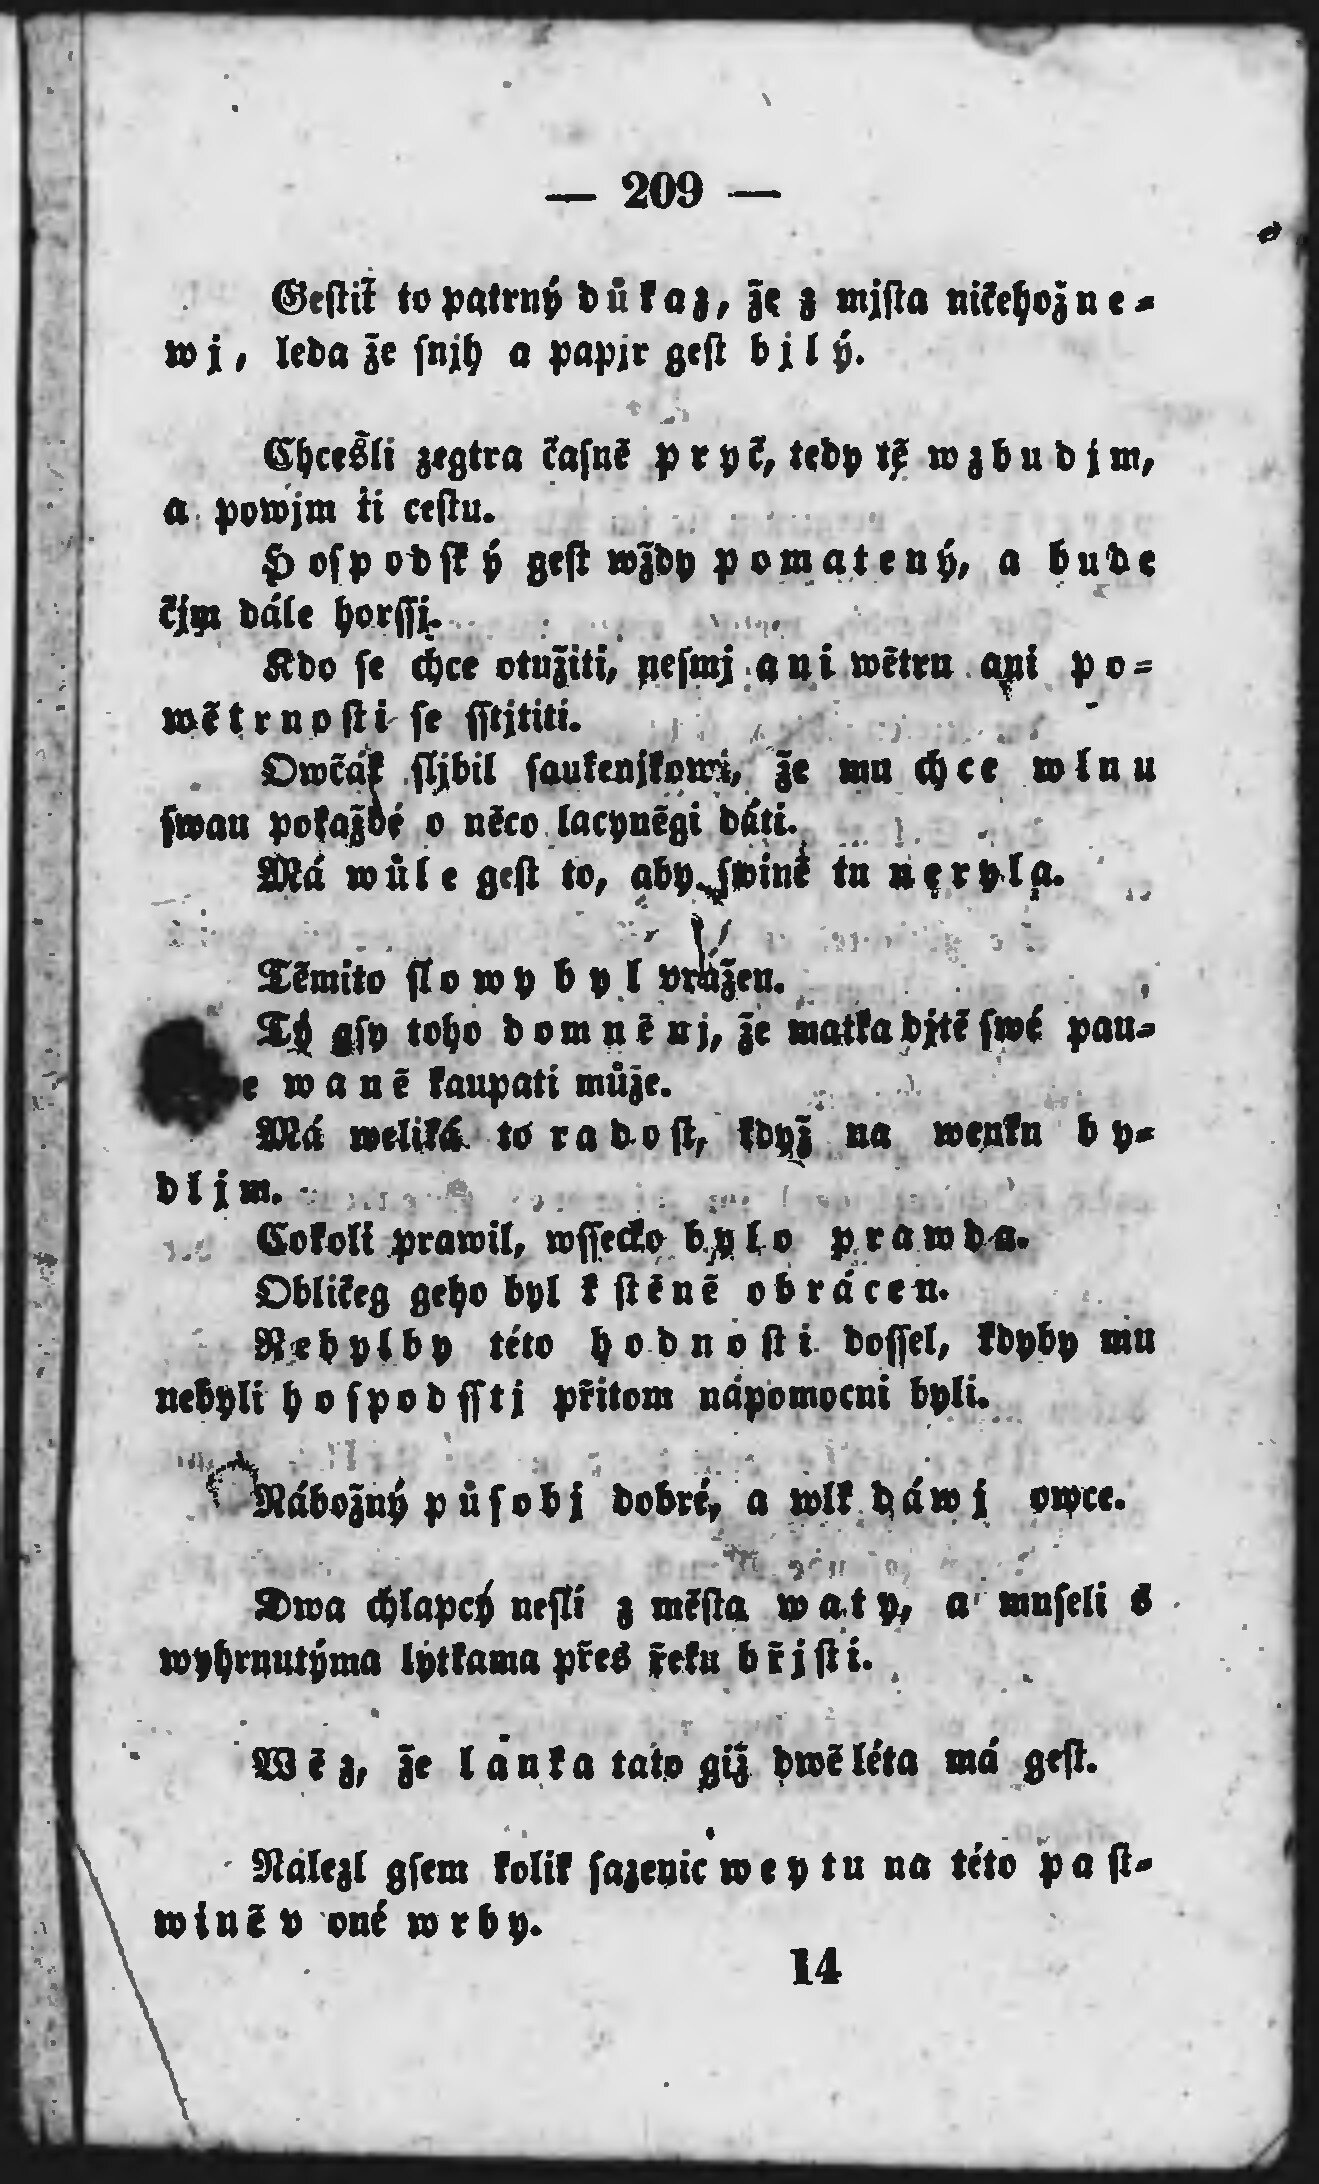 — 209 —
Geſtiť to patrný důkaz, že z mjſta ničehož ne-
wj, leda že ſnjh a papjr geſt bjlý.
Chceš̌li zegtra čaſně pryč, tedy tě wzbudjm,
a powjm ti ceſtu.
Hoſpodſký geſt wždy pomatený, a bude
čjm dále horſſj.
Kdo ſe chce otužiti, neſmj ani wětru ani po-
wětrnoſti ſe ſſtjtiti.
Owčák ſljbil ſaukenjkowi, že mu chce wlnu
ſwau pokaždé o něco lacyněgi dáti.
Má wůle geſt to, aby ſwině tu neryla.
Těmito ſlowy byl vražen.
Tý gſy toho domněnj, že matka djtě ſwé pau-
e waně kaupati může.
Má weliká to radoſt, když na wenku by-
dljm.
Cokoli prawil, wſſecko bylo prawda.
Obličeg geho byl k ſtěně obrácen.
Nebylby této hodnoſti doſſel, kdyby mu
nebyli hoſpodſſtj přitom nápomocni byli.
Nábožný půſobj dobré, a wlk dáwj owce.
Dwa chlapcý neſli z měſta waty, a muſeli s
wyhrnutýma lýtkama přes řeku břjſti.
Wěz, že lanka tato giž dwě léta má geſt.
Nalezl gſem kolik ſazenic weytu na této paſt-
wině v oné wrby.
14